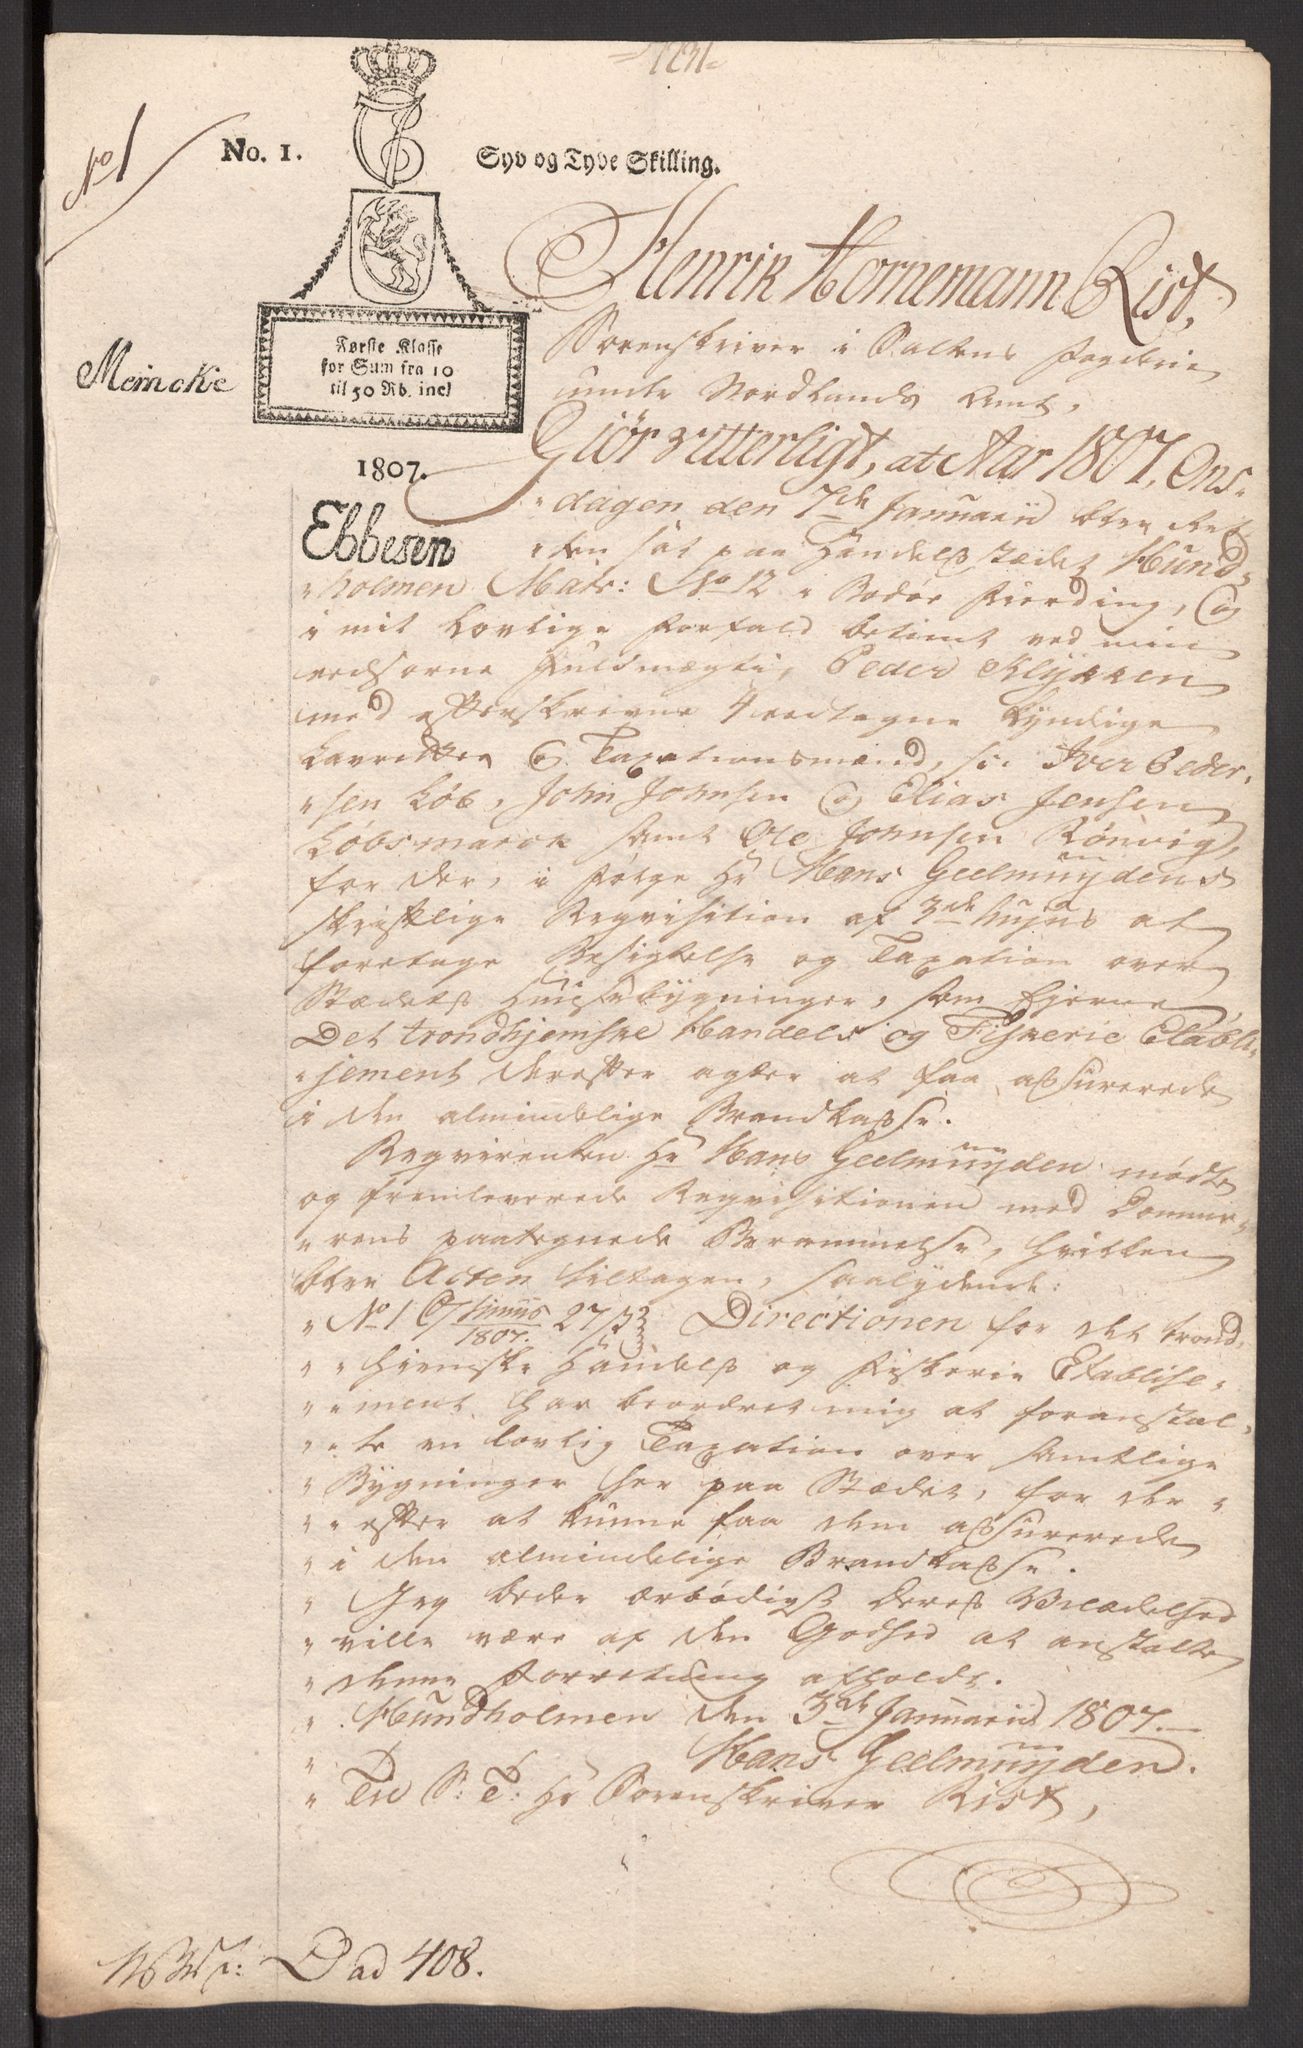 No 1
No. 1.
Syv og Tyve Skilling.
Første Klasse
for Sum fra 10
til 50 Rd. incl
1807.
Meincke
Ebbesen
Henrik Hornemann Rist,
Sorenskriver i Saltens Fogderie
unde Nordlands Amt,
Giör vitterligt, at Aar 1807, Ons-
"dagen den 7de Januarii blev Ret-
"ten sat paa Handelsstædet Hund-
"holmen Matr: No 12 " Bodøe Fierding, og
i mit lovlige Forfald betient ved min
edsvorne Fuldmægtig, Peder Klykken
med efterskrevne 4 eedtagne kyndige
Lavretter og Taxationsmænd, s: Iver Peder-
"sen Løb, John Johnsen og Elias Jensen
Løbsmarck samt Ole Johnsen Rönvig,
for der, i Følge Hr Hans Geelmuÿdens
skriftlige Reqvisition af 3de hujus at
foretage Besigtelse og Taxation over
Stædets Huusebygninger, som Ejerne
Det trondhjemske Handels og Fiskerie Etabli-
"sement derefter agter at faa assurerede
i den almindelige Brandkasse.
Reqvirenten Hr Hans Geelmuÿden mødte
og fremleverede Reqvisitionen med Domme-
"rens paategnede Berammelse, hvilken
blev Acten tiltagen, saalydende:
" No 1 27 s 1807. Directionen for det trond-
" "hiemske Handels og Fiskerie Etablise-
" "ment har beordret mig at foranstal-
" "te en lovlig Taxation over samtlige
" Bygninger her paa Stædet, for der-
" "efter at kunne faa dem assurerede
" i den almindelige Brandkasse.
" Jeg beder ærbödigst Deres Velædelhed
" ville være af den Godhed at anstalte
" denne Forretning afholdt.
" Hundholmen den 3de Januarii 1807.
" Hans Geelmuÿden.
" Til S: T: Hr Sorenskriver Rist,
D ad 408.